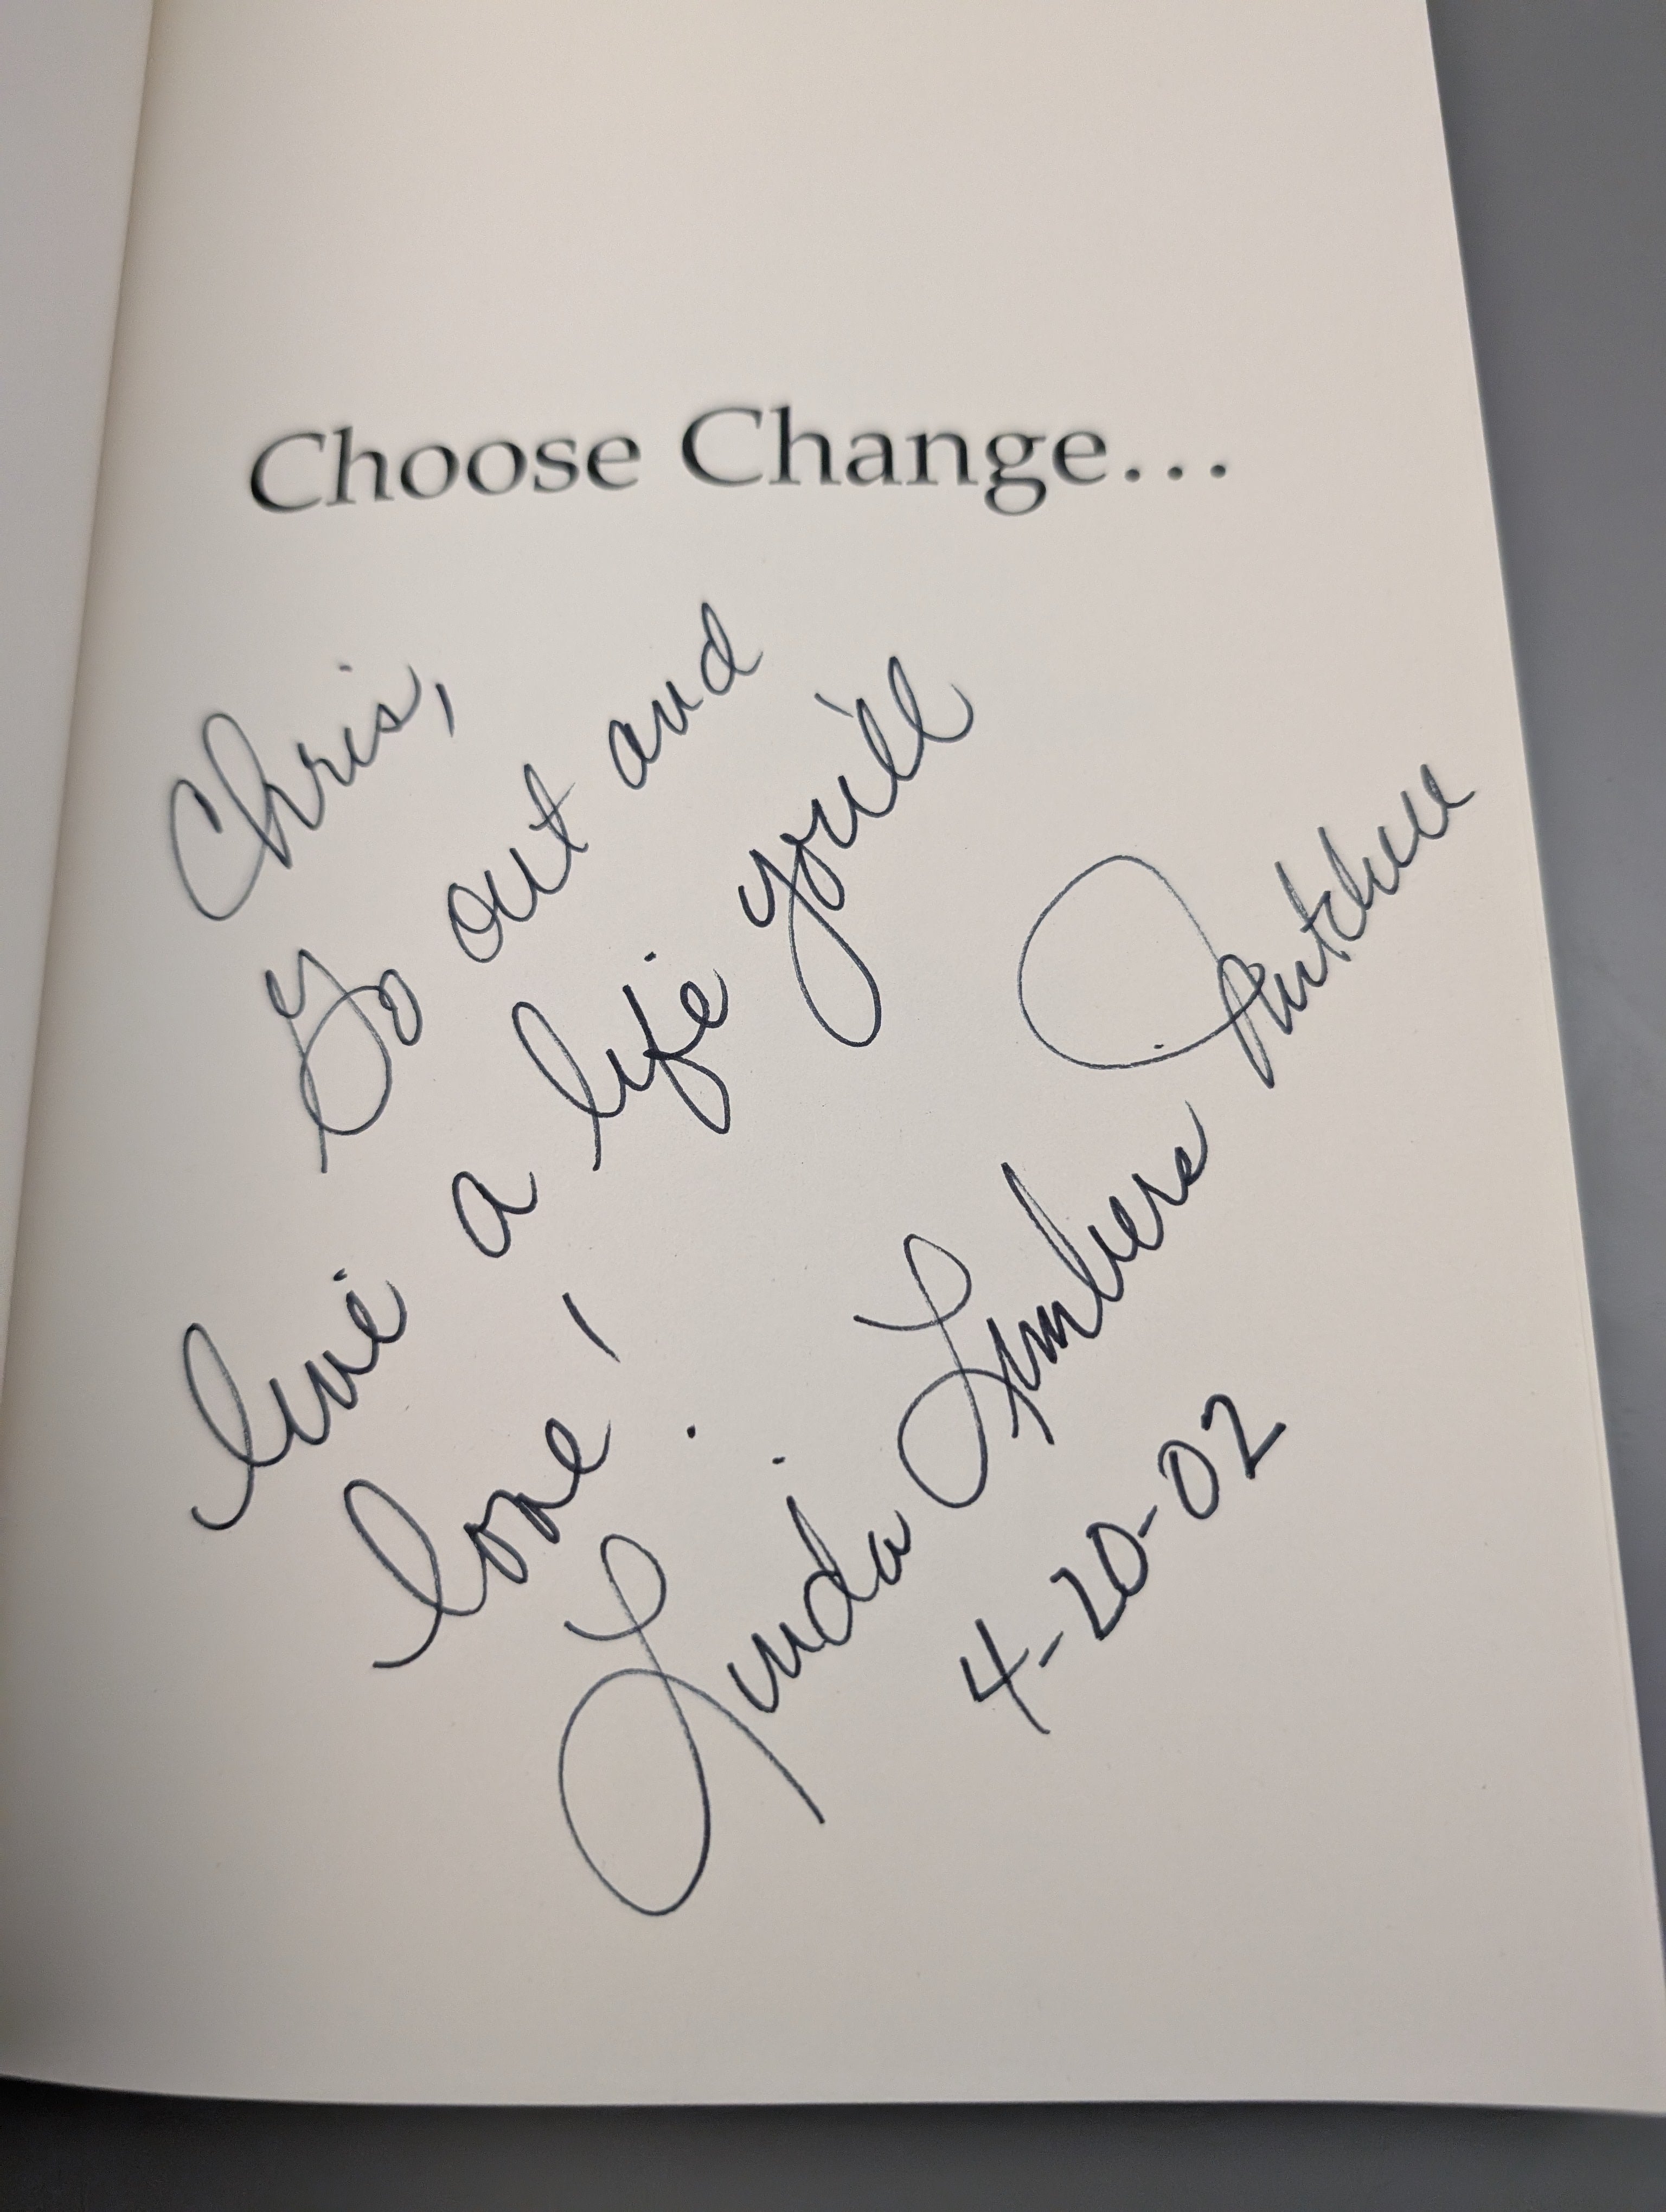 Choose Change...
Chris,
Go out and
live a life you'll
love!
Linda Limbers
4-20-02